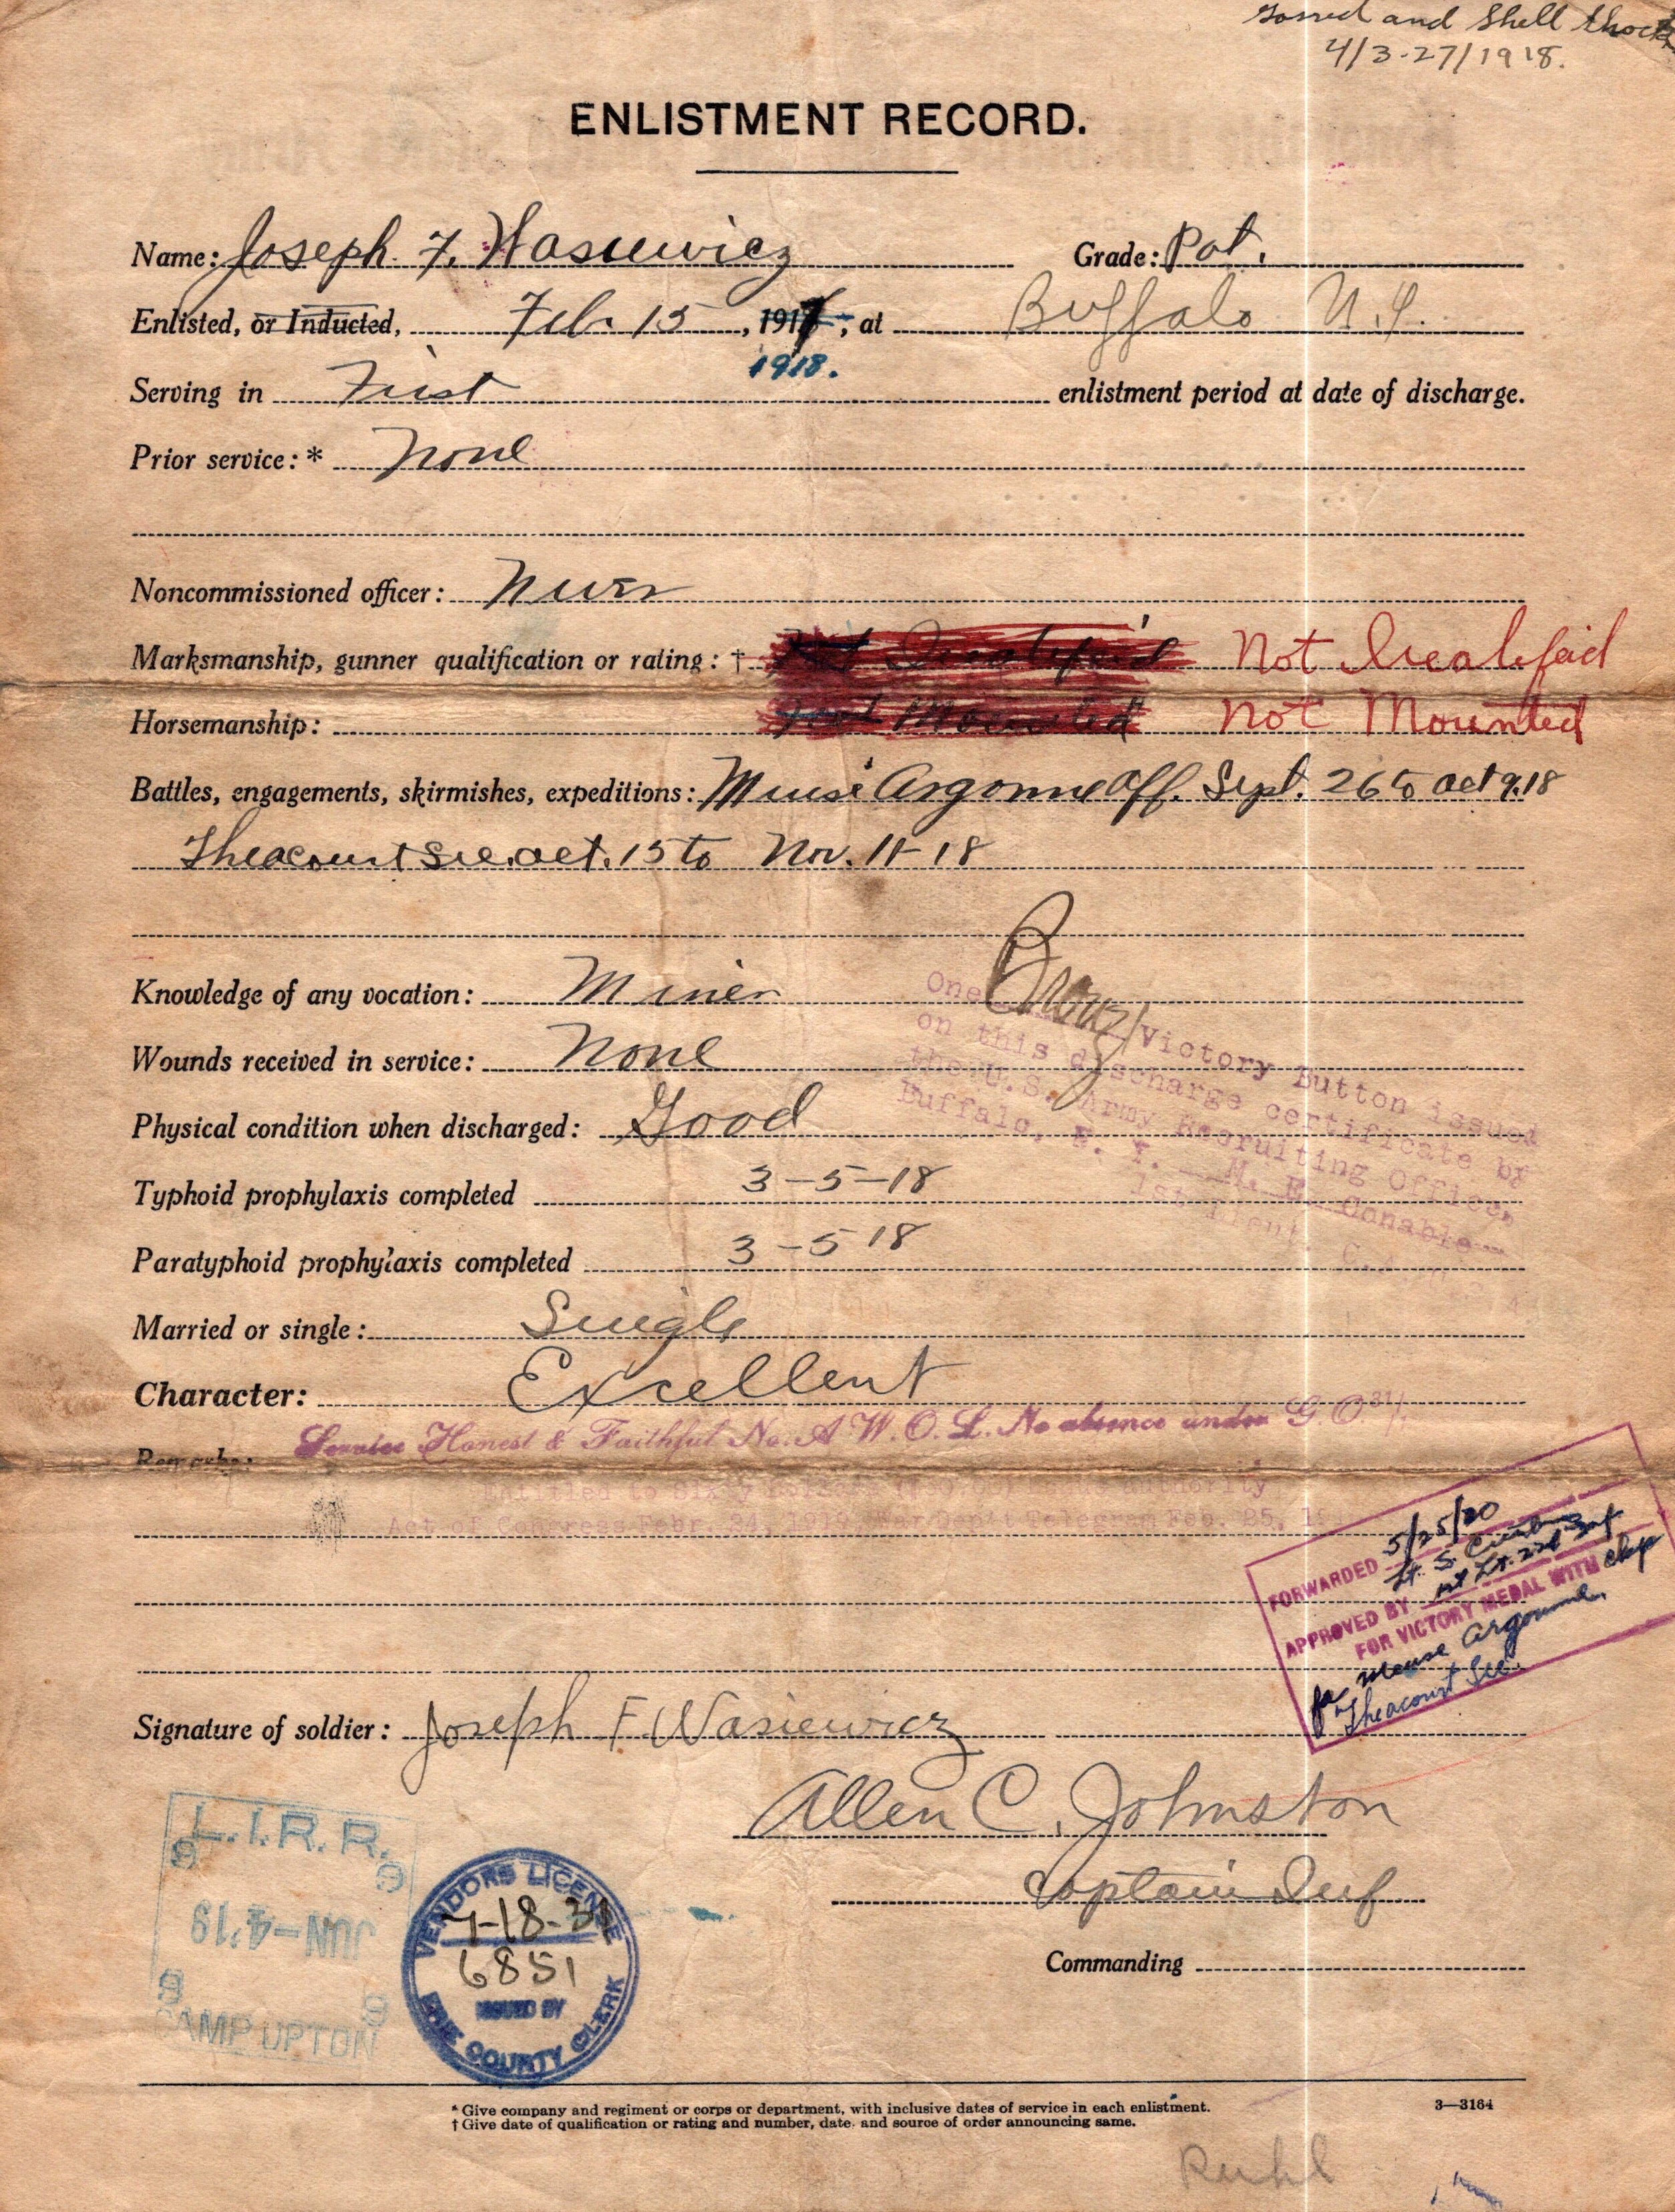 and Shell Shock
4/3-27/1918.
ENLISTMENT RECORD.
Name: Joseph F. Wasiewicz Grade: Pvt.
Enlisted, or Inducted, Feb. 15, 1917, at Buffalo N.Y.
1918.
Serving in First enlistment period at date of discharge.
Prior service: * None
Noncommissioned officer: Never
Marksmanship, gunner qualification or rating: † Not Qualifeid Not Qualifeid
Horsemanship: Not Mounted Not Mounted
Battles, engagements, skirmishes, expeditions: Muse Argonne Off. Sept. 26 to Oct 9.18
Theacourt Sec. Oct. 15 to Nov. 11-18
Knowledge of any vocation: Miner
Bronz
One Victory Button issued
on this discharge certificate by
the U.S. Army Recruiting Officer
Buffalo, N. Y. M. E. Conable
1st Lieut.
Wounds received in service: None
Physical condition when discharged: Good
Typhoid prophylaxis completed 3-5-18
Paratyphoid prophylaxis completed 3-5 18
Married or single: Single
Character: Excellent
Remarks: Service Honest & Faithful No. A W. O. L. No absence under G. O. 31/.
Entitled to Sixty Dollars ($60.00) authority
Act of Congress Febr. 24, 1919 War Dep't Telegram Feb. 25, 19
FORWARDED 5/25/20
Lt. S.
APPROVED BY 1st Lt. 22d Inf
FOR VICTORY MEDAL WITH Clasp
for Meuse Argonne,
Theacourt Sec.
Signature of soldier: Joseph F Wasiewicz
Allen C. Johnston
Captain Inf
Commanding
L.I.R.R.
9 9
JUN-4'19
9 9
CAMP UPTON
VENDORS LICENSE
7-18-31
6851
ISSUED BY
ERIE COUNTY CLERK
* Give company and regiment or corps or department, with inclusive dates of service in each enlistment.
† Give date of qualification or rating and number, date, and source of order announcing same.
3—3164
Ruhl